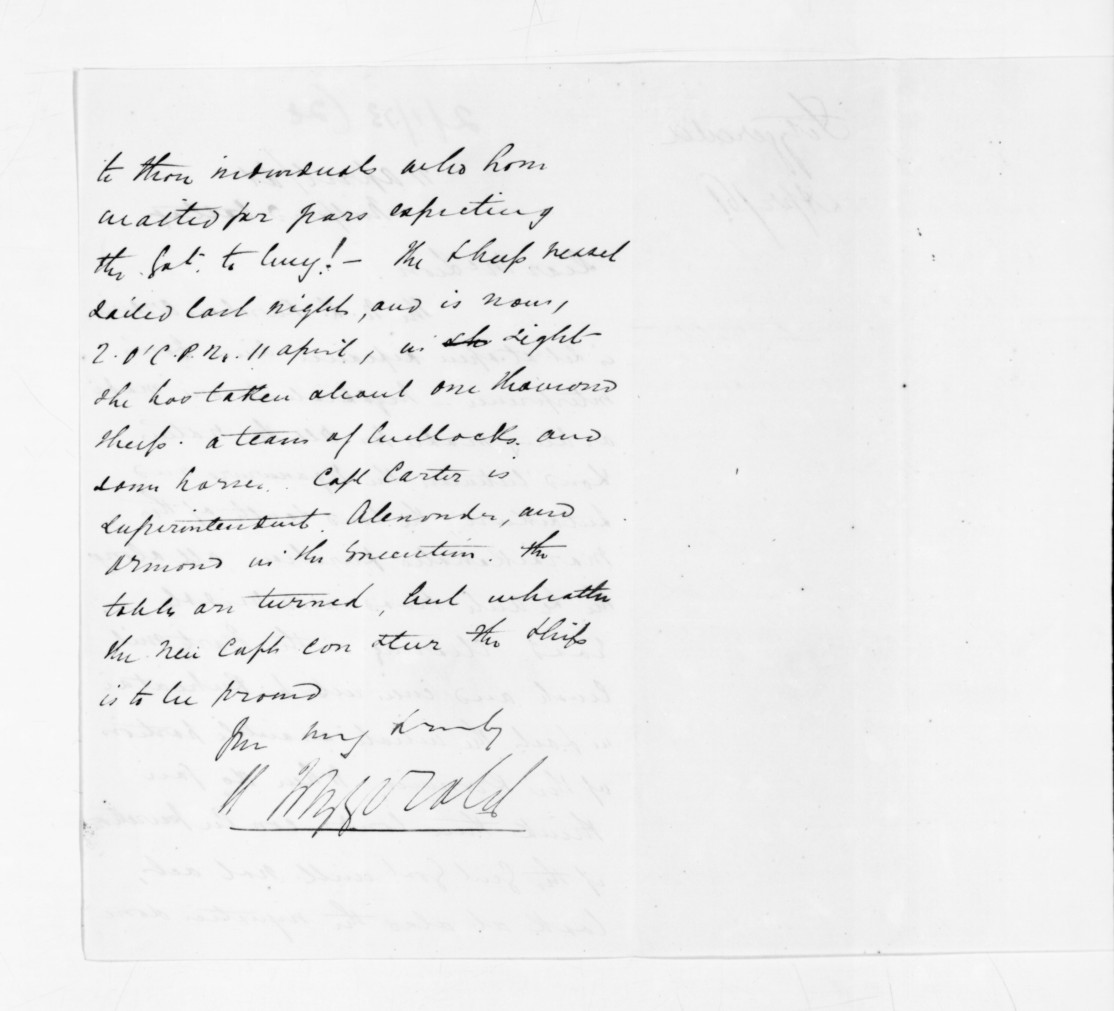 to those individuals who have
waited for years expecting
the Govt. to buy! – The Sheep vessel
sailed last night, and is now,
2. O'C. P.M. 11 April, in sh sight
she has taken about one thousand
sheep. a team of bullocks. and
some horses. Capt Carter is
Superintendent Alexander, and
Ormond is the Executive. The
tables are turned, but wheather
the new Capt can steer the Ship
is to be proved
Yrs very truly
Fitzgerald